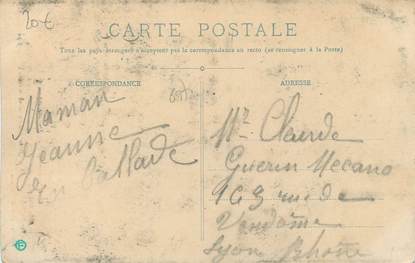 20€
CARTE POSTALE
Tous les pays étrangers n'acceptent pas la correspondance au recto (se renseigner à la Poste)
CORRESPONDANCE
ADRESSE
Maman
Jeanne
En Ballade
Mr Claude
Guerin Mecano
163 rue de
Vendôme
Lyon Rhône